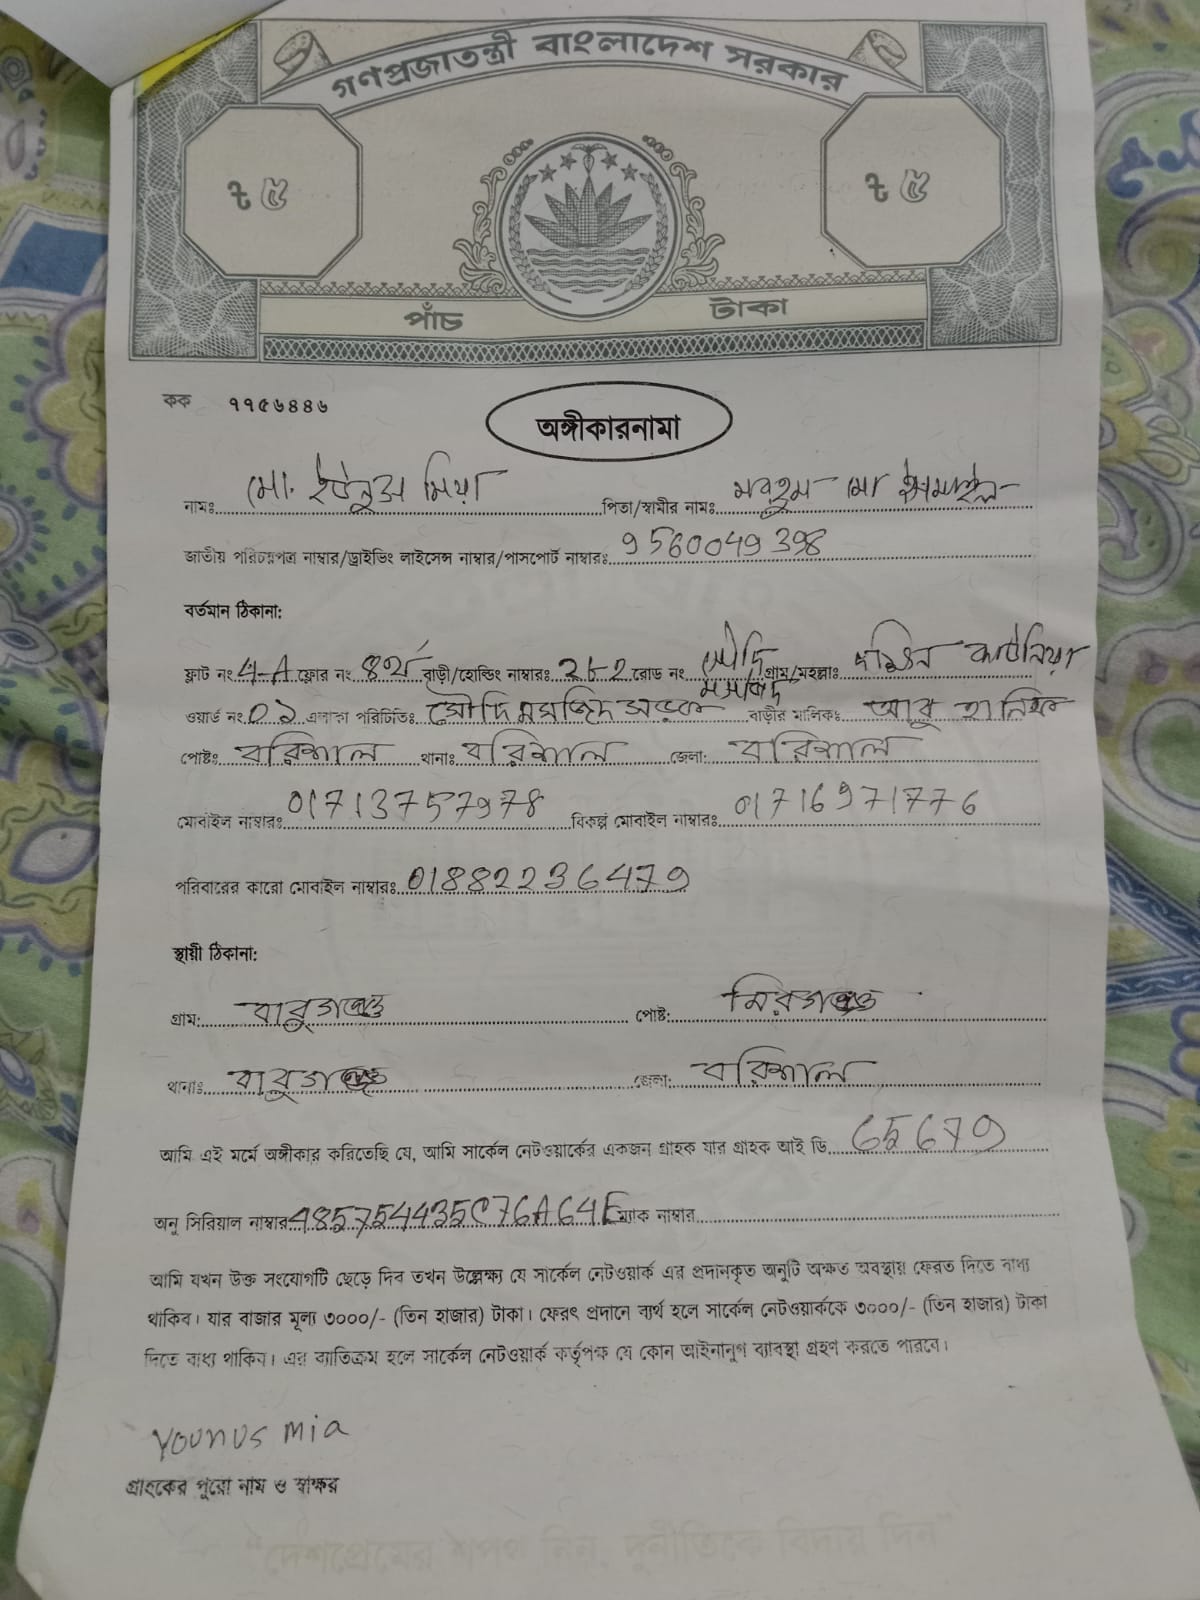 গণপ্রজাতন্ত্রী বাংলাদেশ সরকার
৳ ৫ ৳ ৫
পাঁচ টাকা
কক ৭৭৫৬৪৪৬
অঙ্গীকারনামা
নামঃ মো. ইউনুস মিয়া পিতা/স্বামীর নামঃ মরহুম মো ইসমাইল
জাতীয় পরিচয়পত্র নাম্বার/ড্রাইভিং লাইসেন্স নাম্বার/পাসপোর্ট নাম্বারঃ 9560049398
বর্তমান ঠিকানা:
ফ্লাট নং 4-A ফ্লোর নং ৪র্থ বাড়ী/হোল্ডিং নাম্বারঃ রোড নং সৌদি মসজিদ গ্রাম/মহল্লাঃ দক্ষিন
ওয়ার্ড নং 0১ এলাকা পরিচিতিঃ সৌদি মসজিদ সড়ক বাড়ীর মালিকঃ আবু হানিফ
পোষ্টঃ বরিশাল থানাঃ বরিশাল জেলা: বরিশাল
মোবাইল নাম্বারঃ 01713757978 বিকল্প মোবাইল নাম্বারঃ 01716971776
পরিবারের কারো মোবাইল নাম্বারঃ 01882236479
স্থায়ী ঠিকানা:
গ্রাম: বাবুগঞ্জ পোষ্ট: মিরগঞ্জ
থানাঃ বাবুগঞ্জ জেলা: বরিশাল
আমি এই মর্মে অঙ্গীকার করিতেছি যে, আমি সার্কেল নেটওয়ার্কের একজন গ্রাহক যার গ্রাহক আই ডি 65679
অনু সিরিয়াল নাম্বার 485754435C76A64E ম্যাক নাম্বার
আমি যখন উক্ত সংযোগটি ছেড়ে দিব তখন উল্লেক্ষ্য যে সার্কেল নেটওয়ার্ক এর প্রদানকৃত অনুটি অক্ষত অবস্থায় ফেরত দিতে বাধ্য
থাকিব। যার বাজার মূল্য ৩০০০/- (তিন হাজার) টাকা। ফেরৎ প্রদানে ব্যর্থ হলে সার্কেল নেটওয়ার্ককে ৩০০০/- (তিন হাজার) টাকা
দিতে বাধ্য থাকিব। এর ব্যতিক্রম হলে সার্কেল নেটওয়ার্ক কর্তৃপক্ষ যে কোন আইনানুগ ব্যাবস্থা গ্রহণ করতে পারবে।
Younus mia
গ্রাহকের পুরো নাম ও স্বাক্ষর
"দেশপ্রেমের শপথ নিন, দুর্নীতিকে বিদায় দিন"